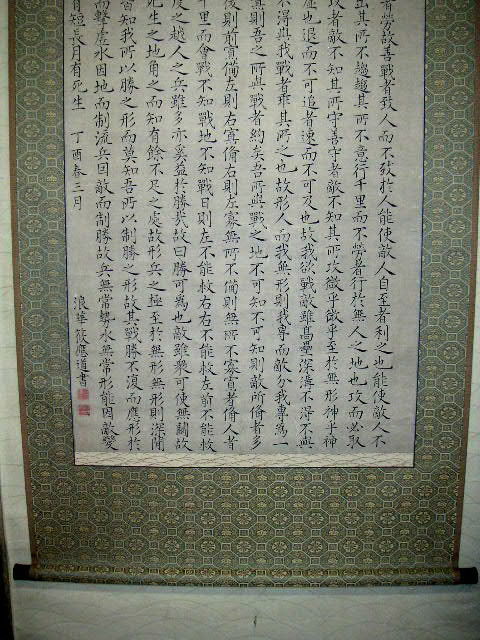 者勞故善戰者致人而不致於人能使敵人自至者利之也能使敵人不
出其所不趨趨其所不意行千里而不勞者行於無人之地也攻而必取
攻者敵不知其所守善守者敵不知其所攻微乎微乎至於無形神乎神
虛也退而不可追者速而不可及也故我欲戰敵雖高壘深溝不得不與
不得與我戰者乖其所之也故形人而我無形則我專而敵分我專為一
寡則吾之所與戰者約矣吾所與戰之地不可知不可知則敵所備者多
後則前寡備左則右寡備右則左寡無所不備則無所不寡寡者備人者
千里而會戰不知戰地不知戰日則左不能救右右不能救左前不能救
度之越人之兵雖多亦奚益於勝哉故曰勝可為也敵雖衆可使無鬭故
死生之地角之而知有餘不足之處故形兵之極至於無形無形則深間
皆知我所以勝之形而莫知吾所以制勝之形故其戰勝不復而應形於
而擊虛水因地而制流兵因敵而制勝故兵無常勢水無常形能因敵變
有短長月有死生 丁酉春三月
浪華筱應道書